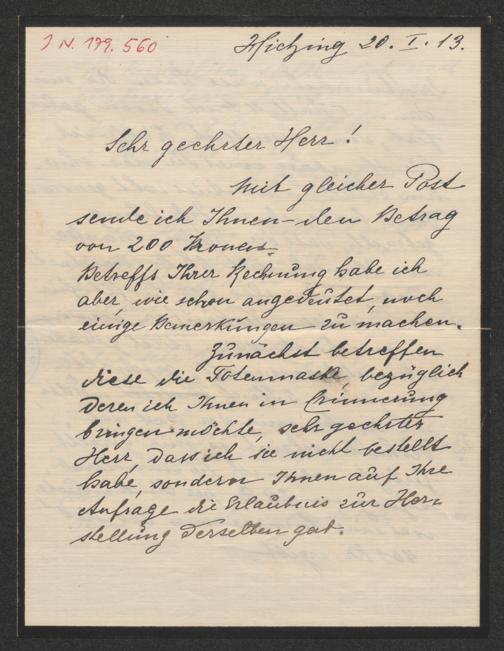 J N. 179.560
Hietzing 20. I. 13.
Sehr geehrter Herr!
Mit gleicher Post
sende ich Ihnen den Betrag
von 200 Kronen
Betreffs Ihrer Rechnung habe ich
aber, wie schon angedeutet, noch
einige Bemerkungen zu machen.
Zunächst betreffen
diese die Totenmaske, bezüglich
deren ich Ihnen in Erinnerung
bringen möchte, sehr geehrter
Herr, dass ich sie nicht bestellt
habe, sondern Ihnen auf Ihre
Anfrage die Erlaubnis zur Her-
stellung derselben gab.